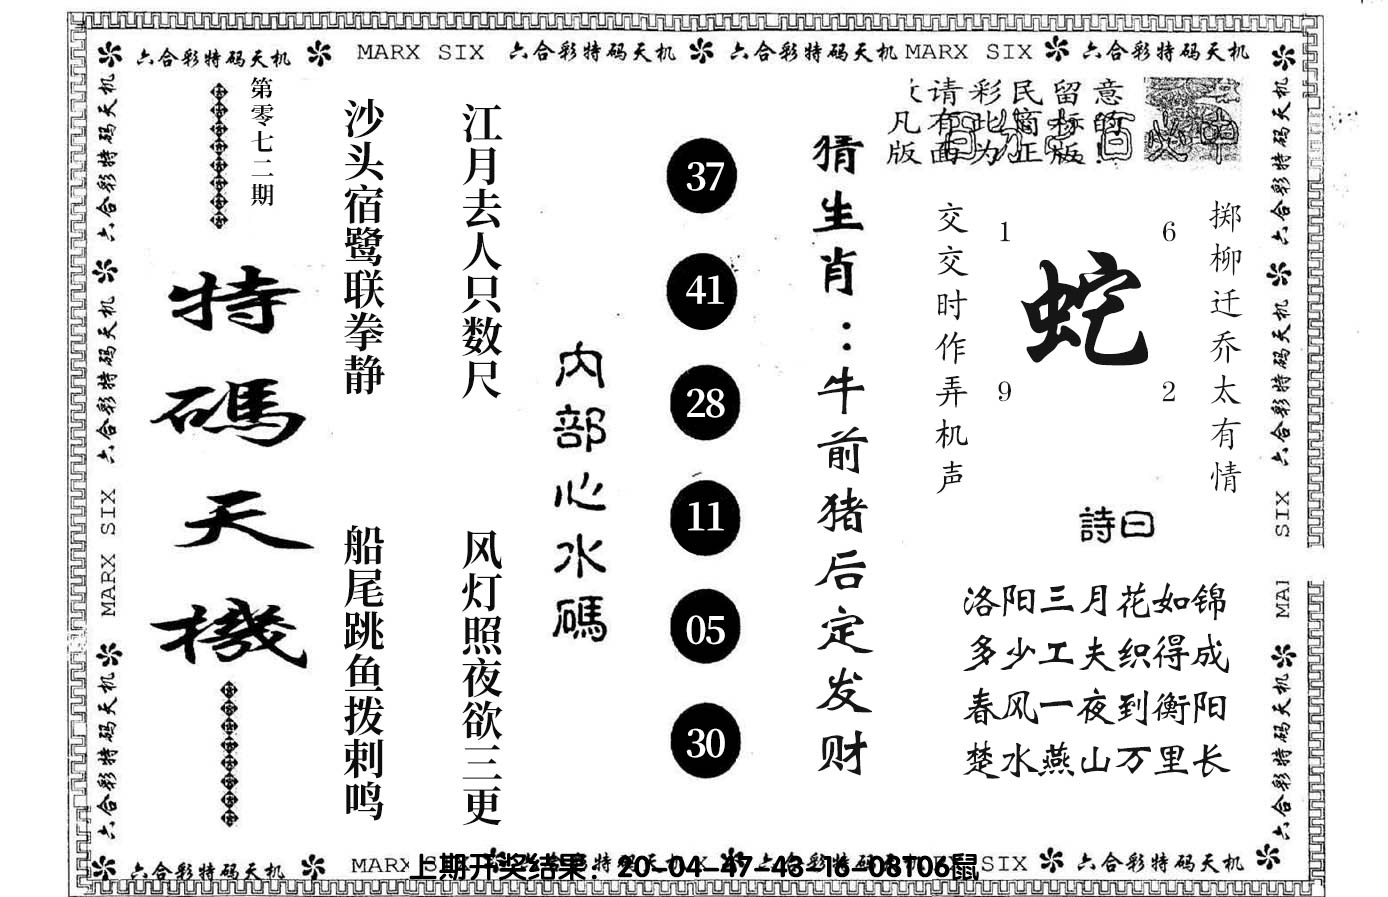 六合彩特码天机 MARX SIX 六合彩特码天机 六合彩特码天机 MARX SIX 六合彩特码天机
第零七二期
特碼天機
沙头宿鹭联拳静
船尾跳鱼拨剌鸣
江月去人只数尺
风灯照夜欲三更
内部心水碼
37
41
28
11
05
30
猜生肖：牛前猪后定发财
请彩民留意
凡有此商标的
版面为正版!
掷柳迁乔太有情
交交时作弄机声
1
6
蛇
9
2
詩曰
洛阳三月花如锦
多少工夫织得成
春风一夜到衡阳
楚水燕山万里长
六合彩特码天机 六合彩特码天机 MARX SIX 六合彩特码天机
六合彩特码天机 六合彩特码天机 SIX MAR 六合彩特码天机
六合彩特码天机 MARX SIX 六合彩特码天机
上期开奖结果：20-04-47-43-16-08T06鼠